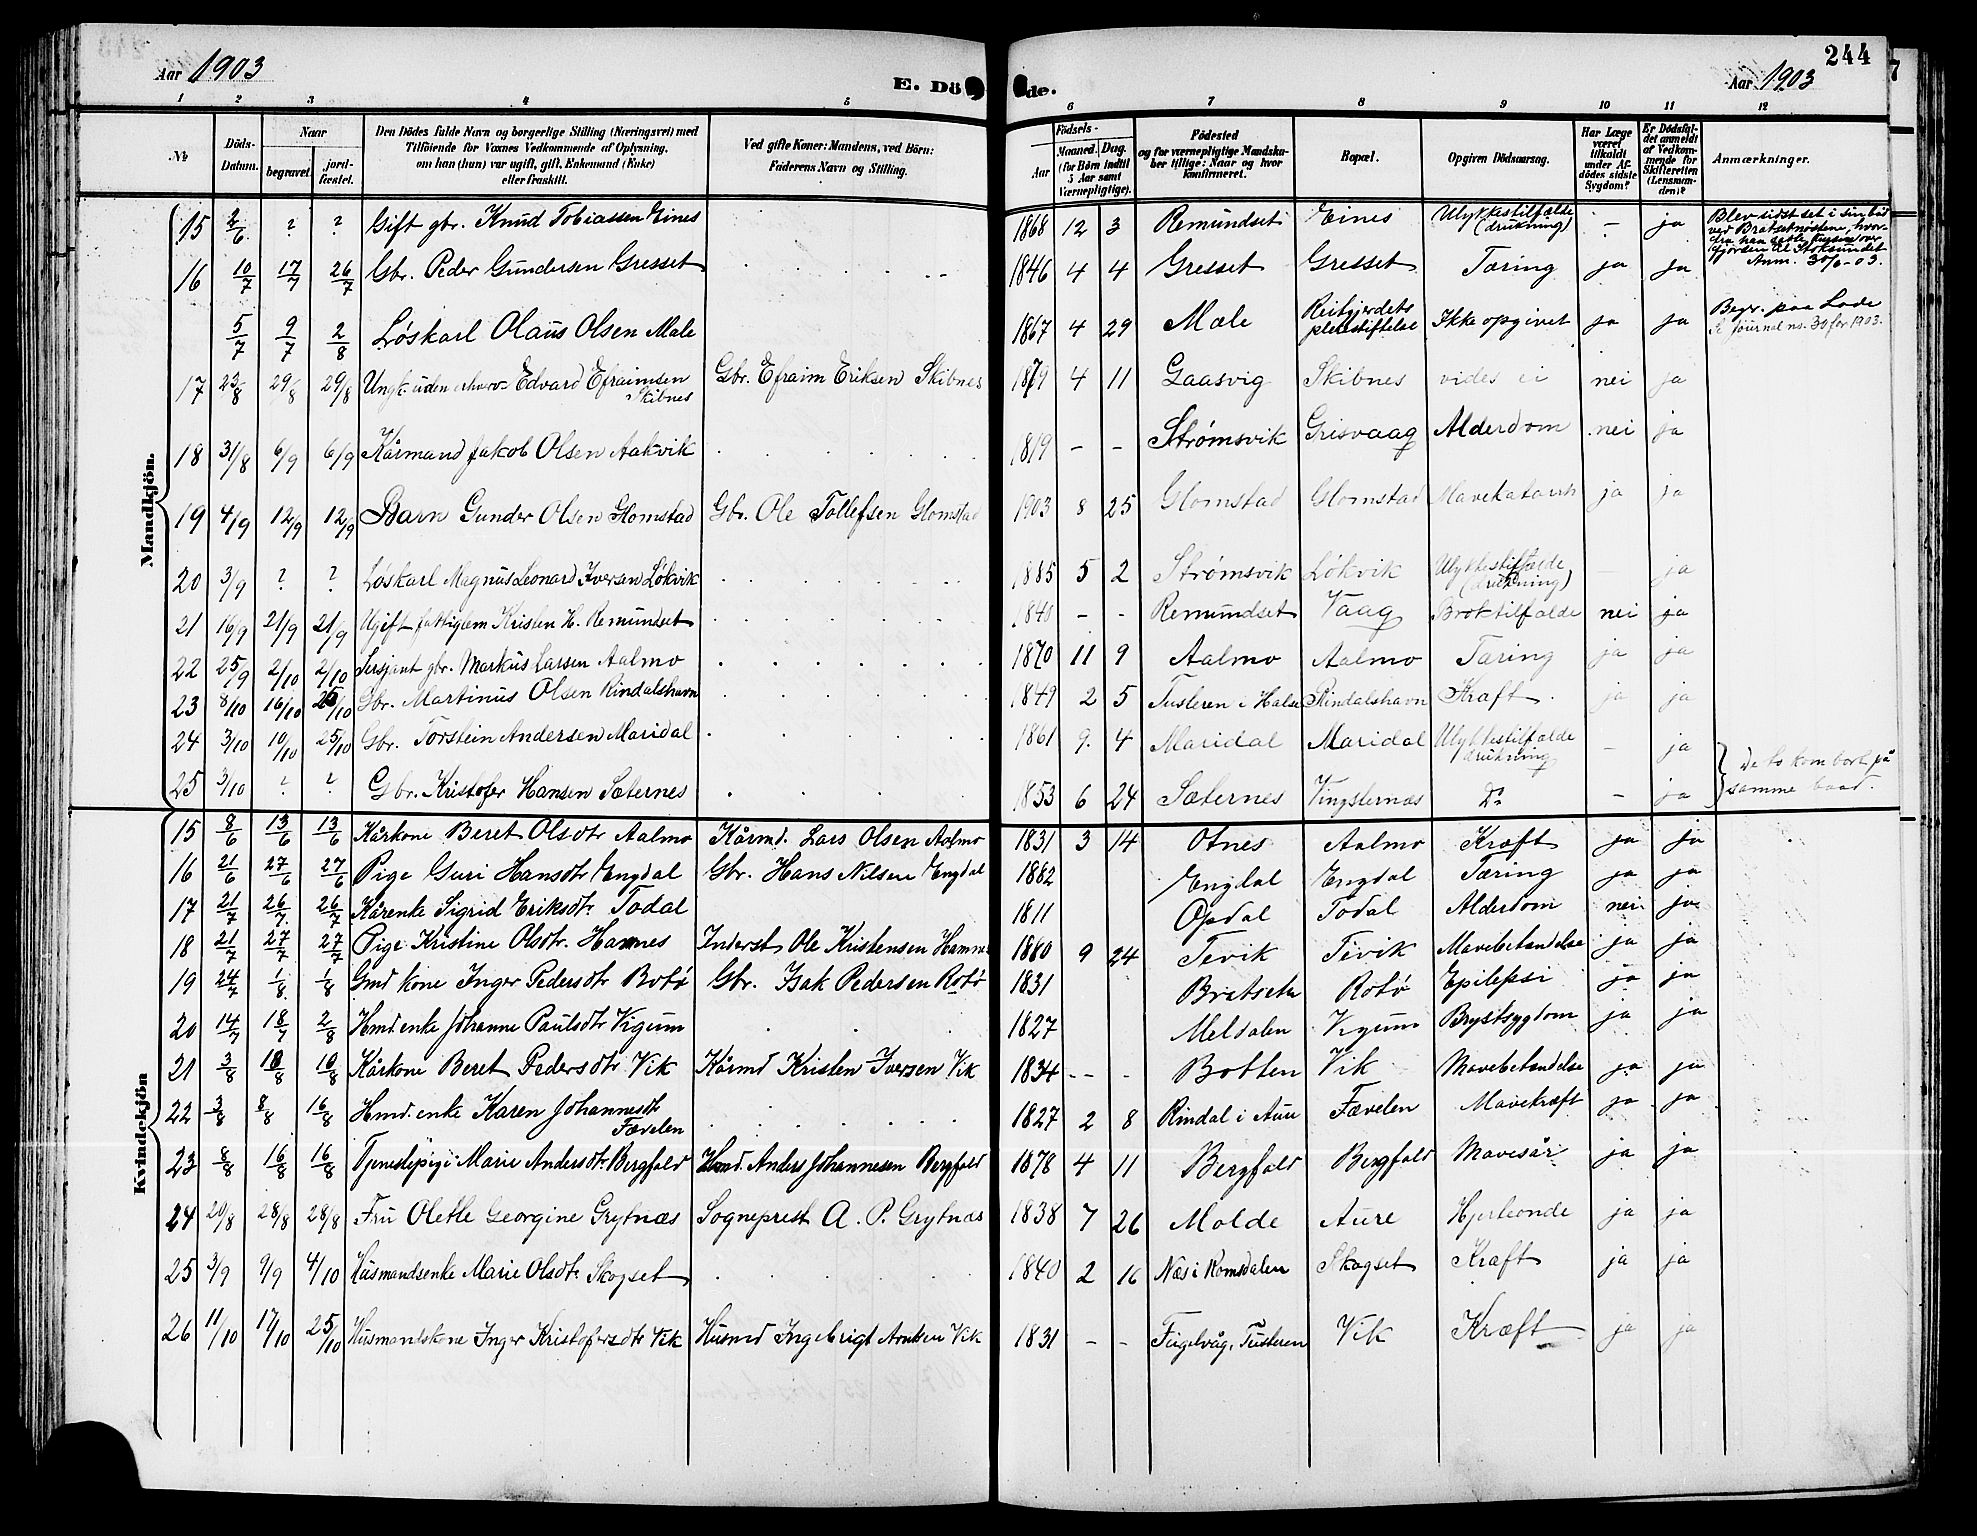 244
Aar 1903
E. Dö de.
Aar 1903
1 2 3 4 5 6 7 8 9 10 11 12
No
Döds-Datum.
Naar begravet. jordfæstet.
Den Dödes fulde Navn og borgerlige Stilling (Næringsvei) med Tilföiende for Voxnes Vedkommende af Oplysning, om han (hun) var ugift, gift, Enkemand (Enke) eller fraskilt.
Ved gifte Koner: Mandens, ved Börn: Faderens Navn og Stilling.
Födsels-
Aar Maaned. Dag. (for Börn indtil 5 Aar samt Værnepligtige).
Födested og for værnepligtige Mandskaber tillige: Naar og hvor konfirmeret.
Bopæl.
Opgiven Dödsaarsag.
Har Læge været tilkaldt under Afdödes sidste Sygdom?
Er Dödsfaldet anmeldt af Vedkommende for Skifteretten (Lensmanden)?
Anmærkninger.
Mandkjön.
15 2/6 ? ? Gift gbr. Knud Tobiassen Eines 1868 12 3 Remundset Eines Ulykkestilfælde (drukning) – ja Blev sidst set i sin båd ved Bratsetnøstene, hvorfra han Stoksundet Anm. 30/6-03.
16 10/7 17/7 26/7 Gbr. Peder Gundersen Gresset 1846 4 4 Gresset Gresset Tæring ja ja
5/7 9/7 2/8 Løskarl Olaus Olsen Male 1867 4 29 Mæle Reitgjerdets pleiestiftelse Ikke opgivet ja ja Begr. paa Lade Journal no. 30 for 1903.
17 23/8 29/8 29/8 Ungk. uden Edvard Efraimsen Skibnes Gbr. Efraim Eriksen Skibnes 1879 4 11 Gaasvig Skibnes vides ei nei ja
18 31/8 6/9 6/9 Kårmand Jakob Olsen Aakvik 1819 – – Strømsvik Grisvaag Alderdom nei ja
19 4/9 12/9 12/9 Barn Gunder Olsen Glomstad Gbr. Ole Tollefsen Glomstad 1903 8 25 Glomstad Glomstad Mavekatarrh ja ja
20 3/9 ? ? Løskarl Magnus Leonard Iversen Løkvik 1885 5 2 Strømsvik Løkvik Ulykkestilfælde (drukning) – ja
21 16/9 21/9 21/9 Ugift fattiglem Kristen H. Remundset 1840 – – Remundset Vaag Broktilfælde nei ja
22 25/9 2/10 2/10 Sersjant gbr. Markus Larsen Aalmo 1870 11 9 Aalmo Aalmo Tæring ja ja
23 8/10 16/10 25/10 Gbr. Martinus Olsen Rindalshavn 1849 2 5 Tusteren i Halse Rindalshavn Kræft ja ja
24 3/10 10/10 25/10 Gbr. Torstein Andersen Maridal 1861 9 4 Maridal Maridal Ulykkestilfælde drukning – ja
25 3/10 ? ? Gbr. Kristofer Hansen Sæternes 1853 6 24 Sæternes Vingsternæs Do – ja De to kom bort på samme baad.
Kvindekjön
15 8/6 13/6 13/6 Kårkone Beret Olsdtr Aalmo Kårmd. Lars Olsen Aalmo 1831 3 14 Otnes Aalmo Kræft ja ja
16 21/6 27/6 27/6 Pige Guri Hansdtr Engdal Gbr. Hans Nilsen Engdal 1882 Engdal Engdal Tæring ja ja
17 21/7 26/7 26/7 Kårenke Sigrid Eriksdtr. Todal 1811 Opdal Todal Alderdom nei ja
18 21/7 27/7 27/7 Pige Kristine Olsdtr. Hamnes Inderst Ole Kristensen Hamnes 1880 9 24 Tevik Tevik Mavebetændelse ja ja
19 24/7 1/8 1/8 Gmd kone Inger Pedersdtr Rotø Gbr. Isak Pedersen Rotø 1831 Bratseth Rotø Epilepsi ja ja
20 14/7 18/7 2/8 Hmd enke Johanne Paulsdtr Vigum 1827 Meldalen Vigum Brystsygdom ja ja
21 3/8 10/8 10/8 Kårkone Beret Pedersdtr Vik Kårmd Kristen Iversen Vik 1834 – – Botten Vik Mavebetændelse ja ja
22 3/8 8/8 16/8 Hmd. enke Karen Johannesdtr Fævelen 1827 2 8 Rindal i Aure Fævelen Mavekræft ja ja
23 8/8 16/8 16/8 Tjenestepige Marie Andersdtr. Bergfald Hmd. Anders Johannesen Bergfald 1878 4 11 Bergfald Bergfald Mavesår ja ja
24 20/8 28/8 28/8 Fru Oletle Georgine Grytnæs Sogneprest A. P. Grytnæs 1838 7 26 Molde Aure Hjerteonde ja ja
25 3/9 9/9 4/10 Husmandsenke Marie Olsdtr Skogset 1840 2 16 Næs i Romsdalen Skogset Kræft ja ja
26 11/10 17/10 25/10 Husmandskone Inger Kristofersdtr Vik Husmd Ingebrigt Arntsen Vik 1831 – – Fugelvåg, Tusteren Vik Kræft ja ja